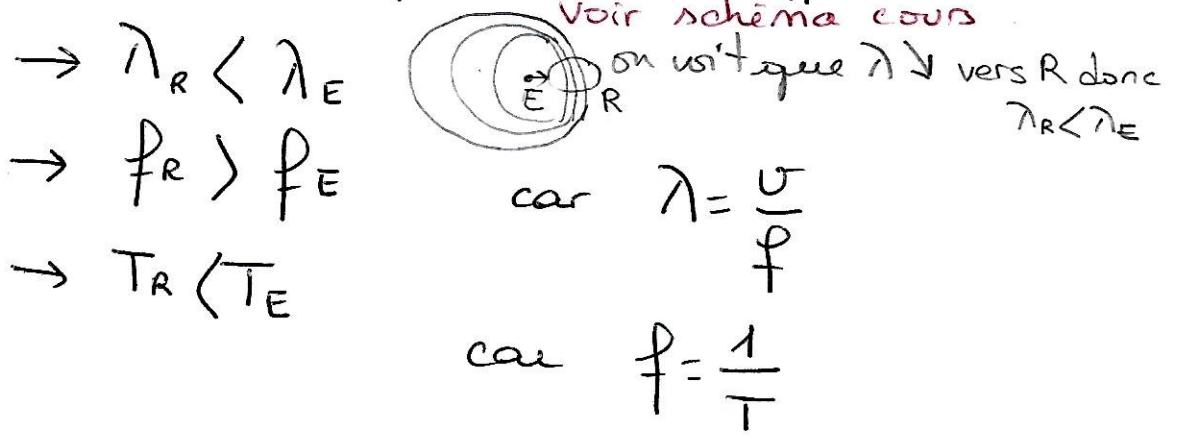 Voir schéma cours
→ λR < λE
E R on voit que λ ↘ vers R donc
λR < λE
→ fR > fE car λ = v/f
→ TR < TE
car f = 1/T